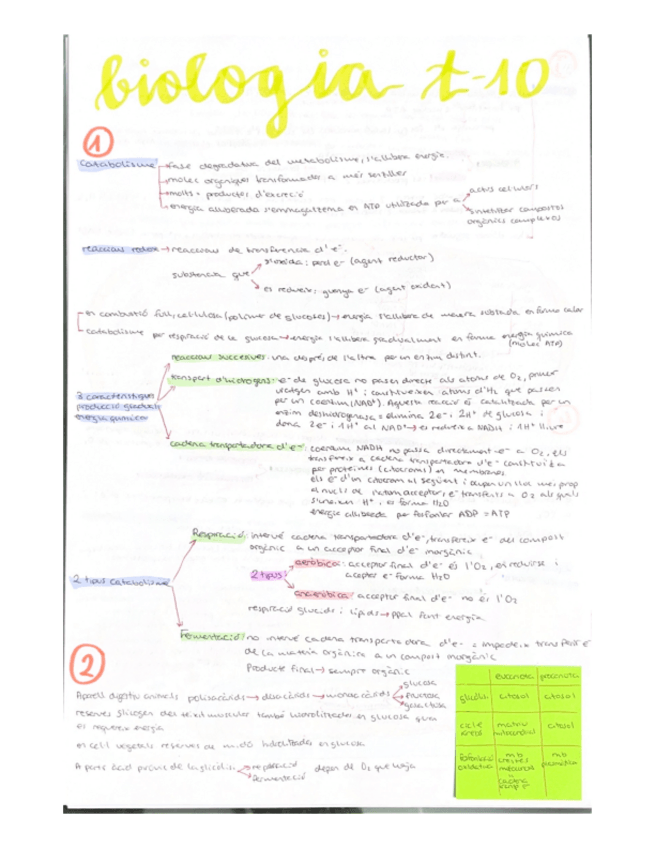 biologia t-10
1
Catabolisme → fase degradativa del metabolisme, s'allibera energia.
→ molec orgàniques transformades a més senzilles
→ molts = productes d'excreció
→ energia alliberada s'emmagatzema en ATP utilitzada per a
activ cel·lulars
sintetitzar compostos orgànics complexos
reaccions redox → reaccions de transferència d'e-.
substància que
s'oxida: perd e- (agent reductor)
es redueix: guanya e- (agent oxidant)
en combustió full, cel·lulosa (polímer de glucoses) → energia s'allibera de manera sobtada en forma calor
catabolisme per respiració de la glucosa → energia s'allibera gradualment en forma energia química
(molec ATP)
3 característiques
producció gradual
energia química
reaccions successives: una després de l'altra per un enzim distint.
transport d'hidrògens: e- de glucosa no passen directe als àtoms de O2, primer
viatgen amb H+ i constitueixen àtoms d'H2 que passen
per un coenzim (NAD+). Aquesta reacció és catalitzada per un
enzim deshidrogenasa = elimina 2e- i 2H+ de glucosa i
dona 2e- i 1H+ al NAD+ → es redueix a NADH i 1H+ lliure
cadena transportadora d'e-: coenzim NADH no passa directament e- a O2, els
transfereix a cadena transportadora d'e- constituïda
per proteïnes (citocroms) en membranes
els e- d'un citocrom al següent i
el nucli de l'àtom acceptor, e- transferits a O2 als quals
s'uneixen H+ i es forma H2O
energia alliberada per fosforilar ADP = ATP
2 tipus catabolisme
Respiració: intervé cadena transportadora d'e-, transfereix e- del compost
orgànic a un acceptor final d'e- inorgànic
2 tipus:
aeròbica: acceptor final d'e- és l'O2, es redueix i
acceptar e- forma H2O
anaeròbica: acceptor final d'e- no és l'O2
respiració glúcids i lípids → ppal font energia
Fermentació: no intervé cadena transportadora d'e- = impedeix transferir e-
de la matèria orgànica a un compost inorgànic
Producte final → sempre orgànic
2
Aparell digestiu animals polisacàrids → disacàrids → monosacàrids
glucosa
fructosa
galactosa
reserves glicogen del teixit muscular també hidrolitzades en glucosa quan
es requereix energia
en cèl·l vegetals reserves de midó hidrolitzades en glucosa
A partir àcid pirúvic de la glicòlisi
respiració
fermentació
depèn de O2 que hi haja
eucariota procariota
glicòlisi citosol citosol
cicle krebs matriu mitocondrial citosol
fosforilació oxidativa mb crestes mitocondrials cadena transp e- mb plasmàtica